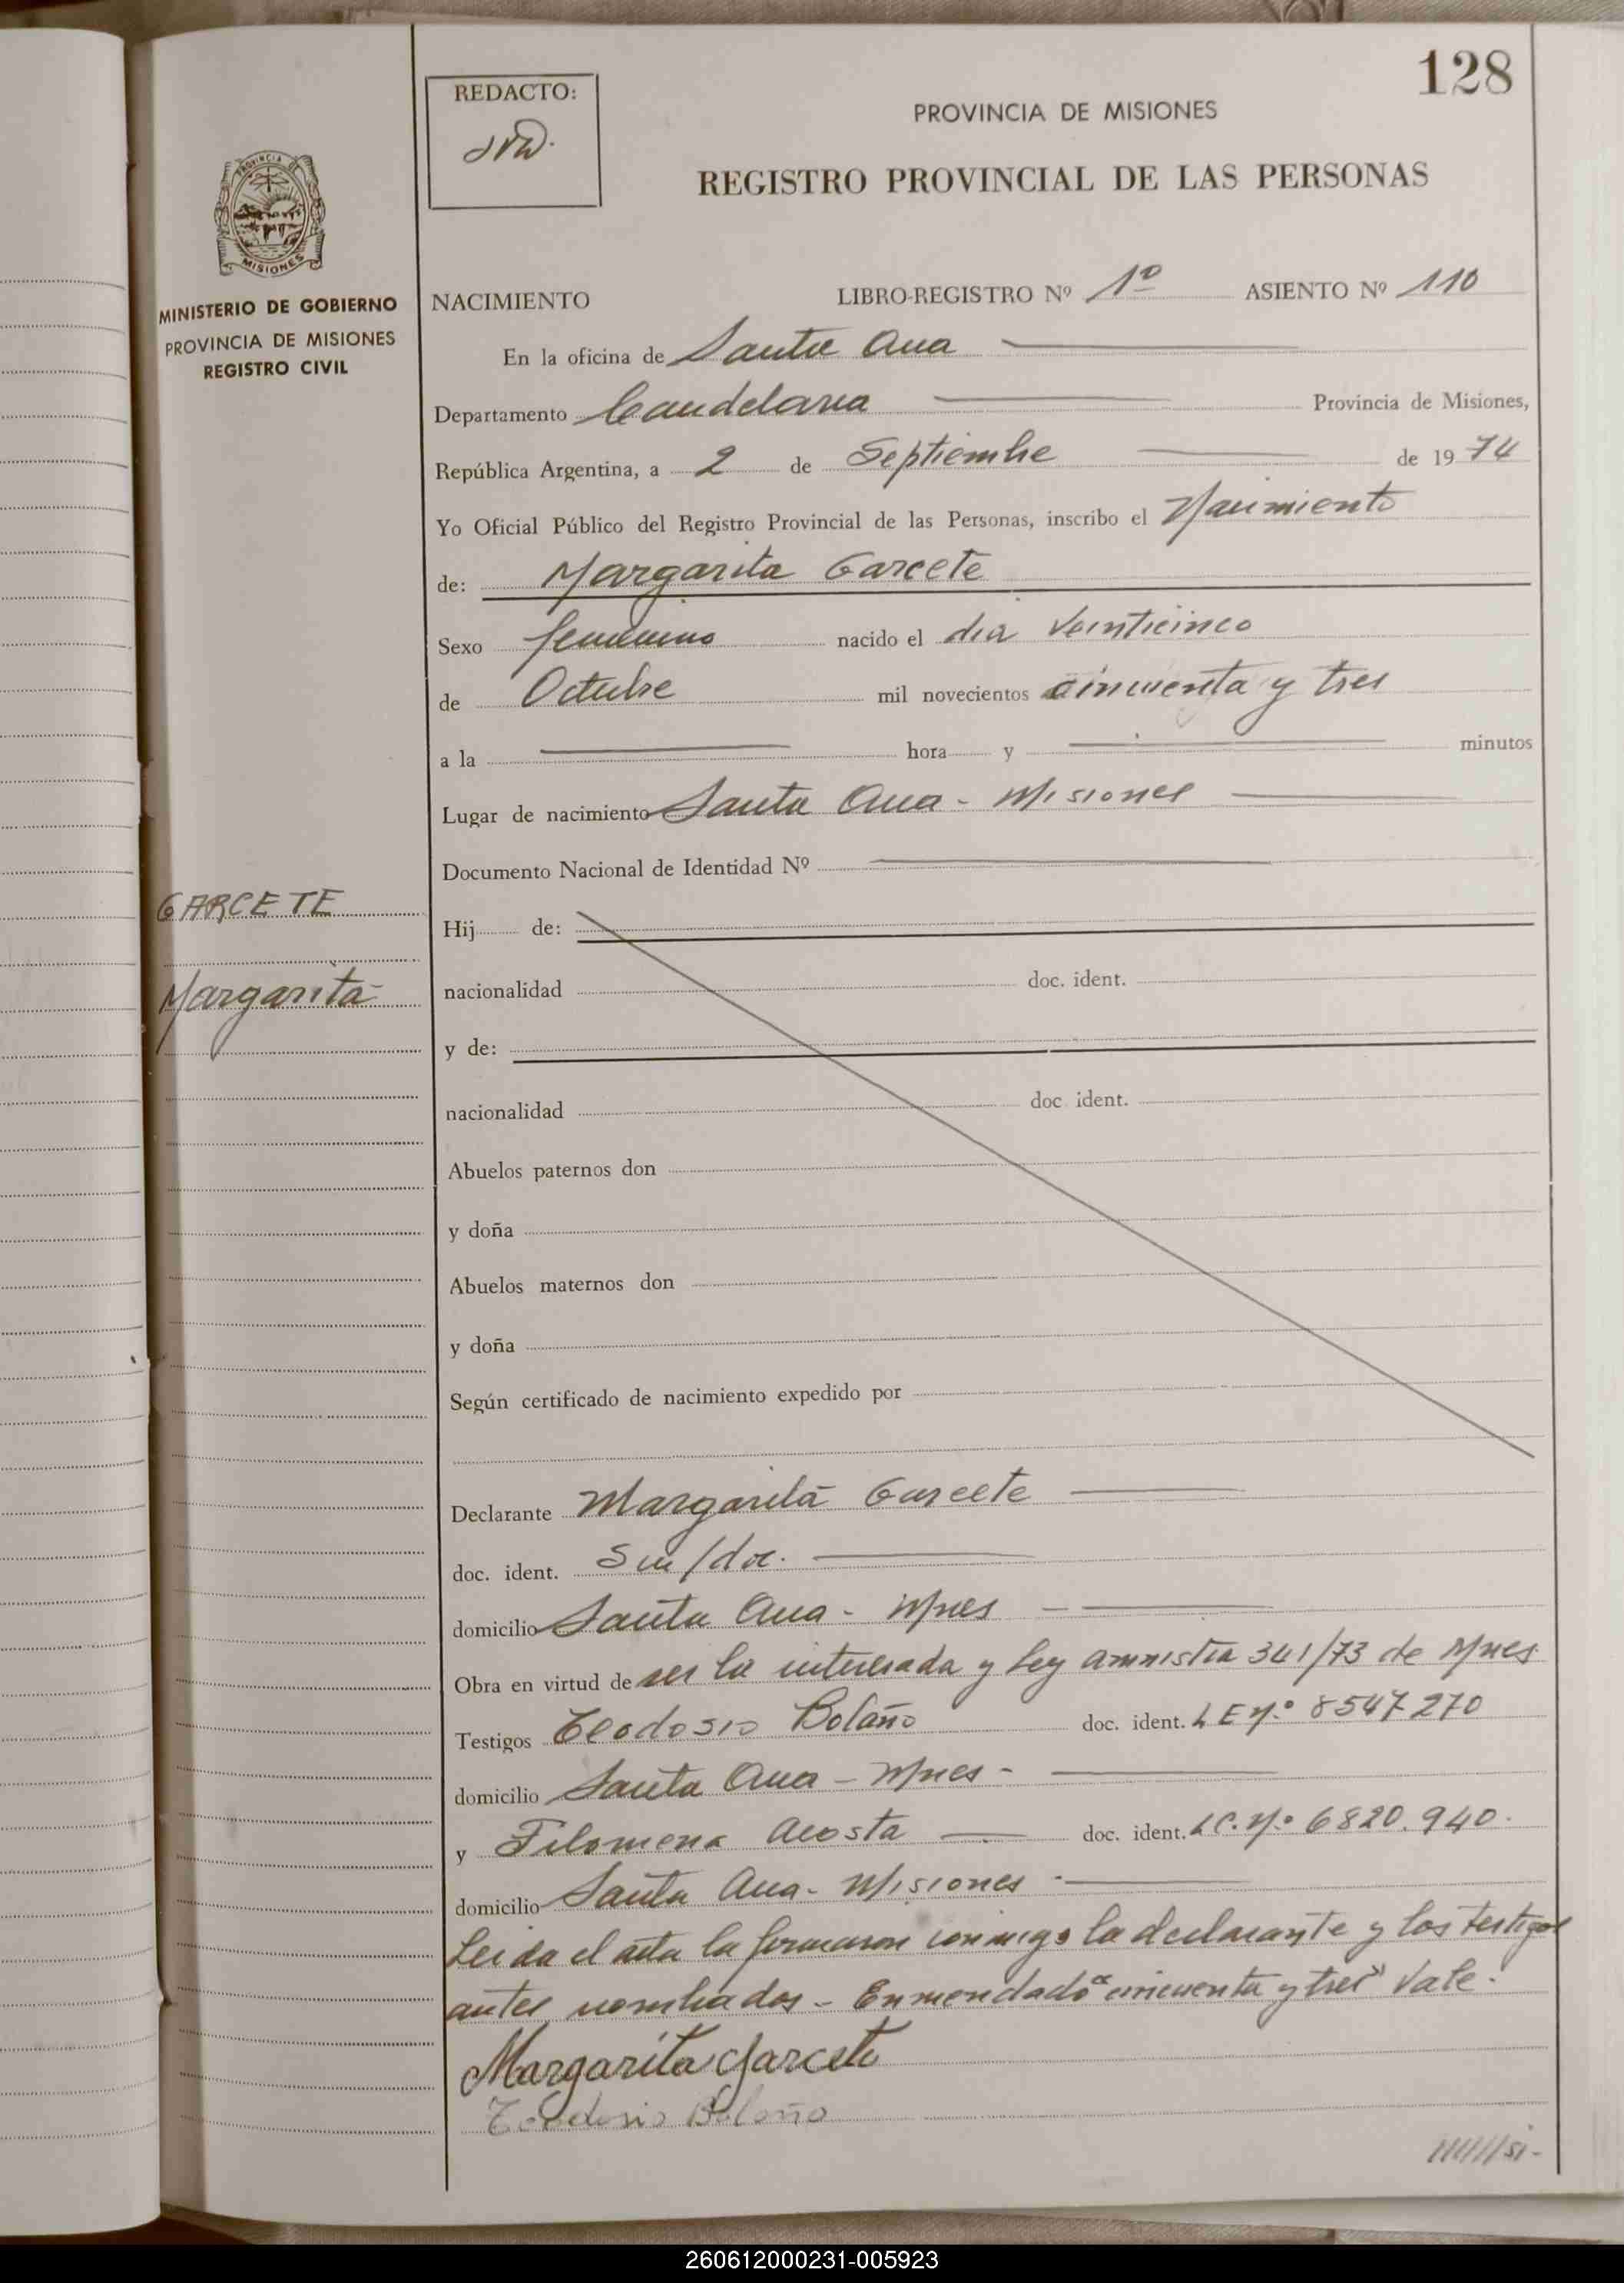 128
REDACTO:
PROVINCIA DE MISIONES
REGISTRO PROVINCIAL DE LAS PERSONAS
PROVINCIA DE
MISIONES
MINISTERIO DE GOBIERNO
PROVINCIA DE MISIONES
REGISTRO CIVIL
NACIMIENTO LIBRO-REGISTRO Nº 1º ASIENTO Nº 110
En la oficina de Santa Ana
Departamento Candelaria Provincia de Misiones,
República Argentina, a 2 de Septiembre de 1974
Yo Oficial Público del Registro Provincial de las Personas, inscribo el Nacimiento
de: Margarita Garcete
Sexo femenino nacido el día veinticinco
de Octubre mil novecientos cincuenta y tres
a la hora y minutos
Lugar de nacimiento Santa Ana - Misiones
Documento Nacional de Identidad Nº
GARCETE
Margarita
Hij de:
nacionalidad doc. ident.
y de:
nacionalidad doc ident.
Abuelos paternos don
y doña
Abuelos maternos don
y doña
Según certificado de nacimiento expedido por
Declarante Margarita Garcete
doc. ident. Sin/doc.
domicilio Santa Ana - Mnes
Obra en virtud de ser la interesada y Ley amnistía 341/73 de Mnes
Testigos Teodosio Bolaño doc. ident. L E Nº 8547270
domicilio Santa Ana - Mnes -
y Filomena Acosta doc. ident. L C. Nº 6820.940.
domicilio Santa Ana - Misiones -
Leida el acta la firmaron conmigo la declarante y los testigos
antes nombrados - Enmendado "cincuenta y tres" Vale.
Margarita Garcete
Teodosio Bolaño
//////si-
260612000231-005923